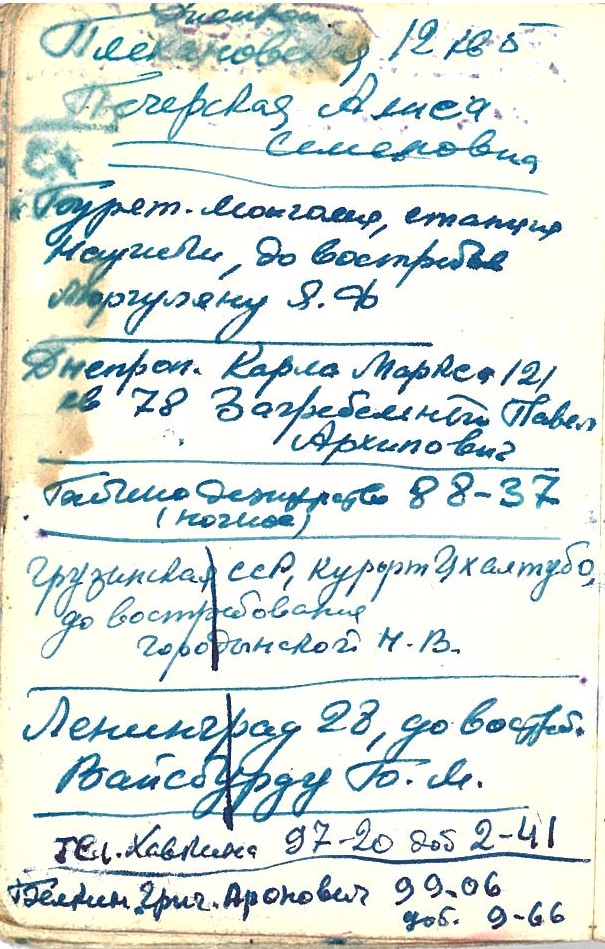 Днепроп.
Плехановская 12 кв 5
Печерская Алиса
Семеновна
Бурят. Монголия, станция
Наушки, до востребов
Моргуляну Я. Ф
Днепроп. Карла Маркса 121
кв 78 Загребельный Павел
Архипович
дежурство 88-37
(ночное)
Грузинская ССР, курорт Цхалтубо,
до востребования
Городынской Н. В.
Ленинград 28, до востреб.
Вайсбурду Б. М.
тел. Хавкина 97-20 доб 2-41
Белкин Григ. Аронович 99-06
доб. 9-66